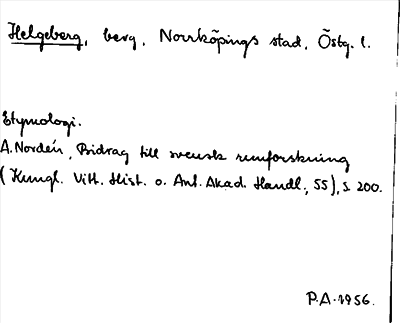 Helgeberg, berg, Norrköpings stad, Östg. l.
Etymologi.
A. Nordén, Bidrag till svensk runforskning
(Kungl. Vitt. Hist. o. Ant. Akad. Handl., 55), s. 200.
P.A. 1956.